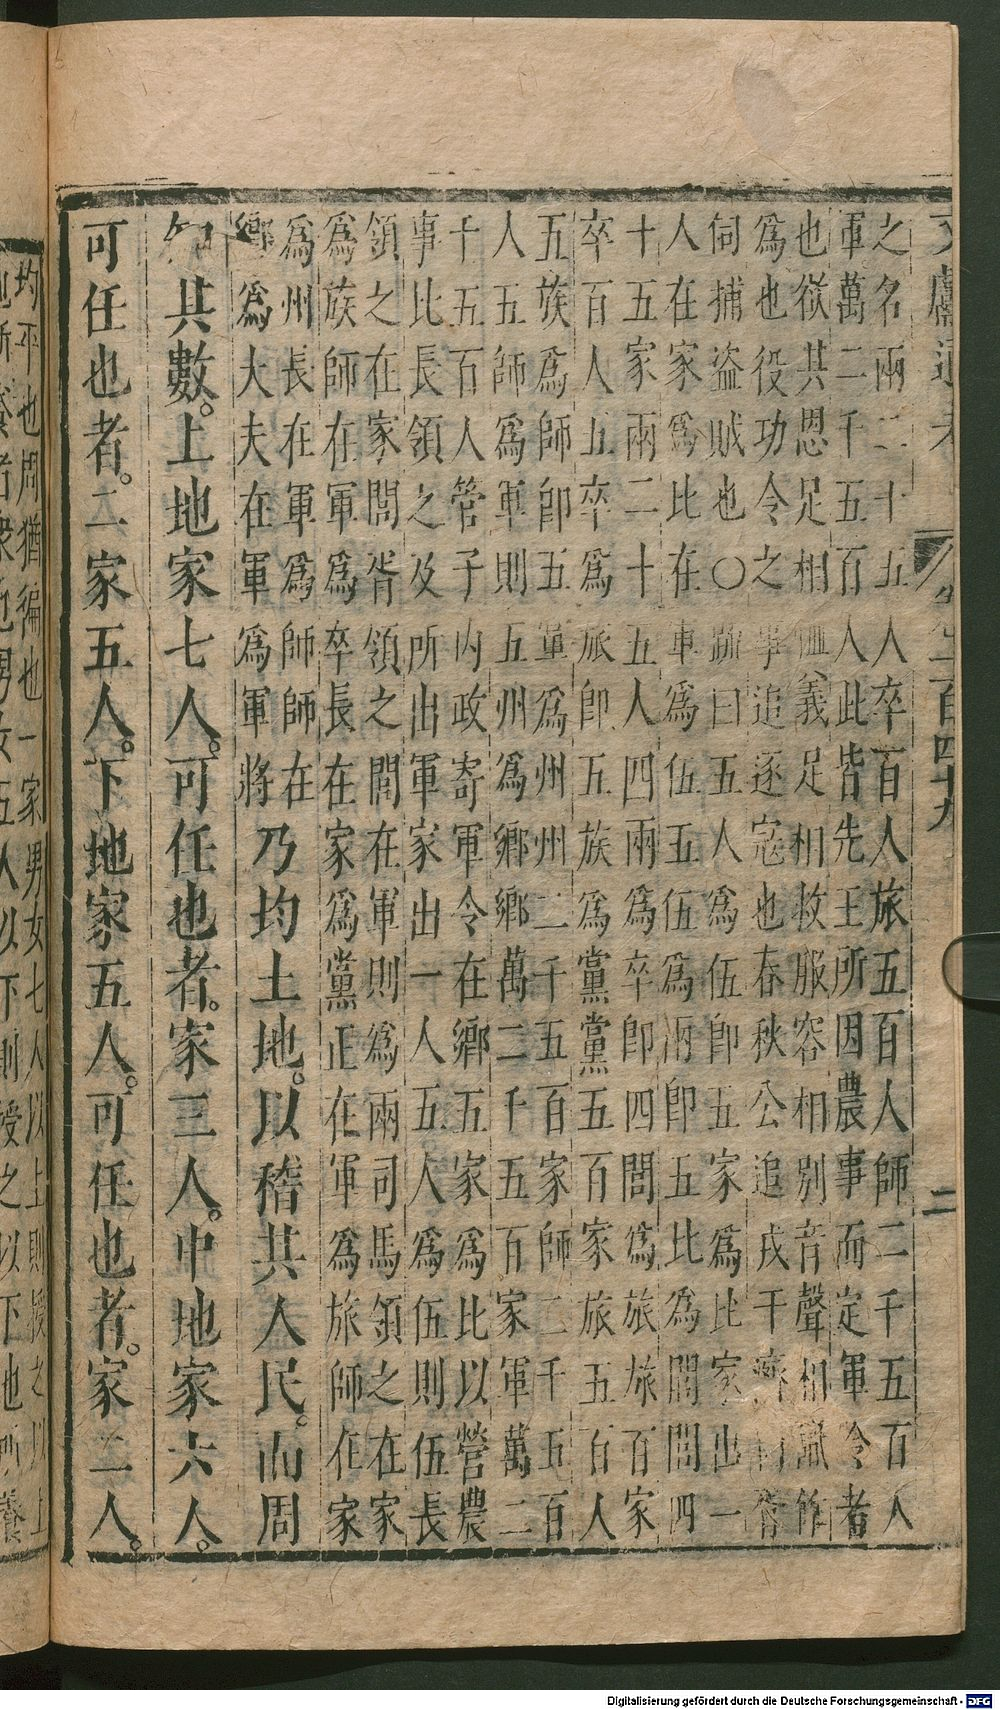 文獻通考 卷一百四十九 二
之名兩二十五人卒百人旅五百人師二千五百人
軍萬二千五百人此皆先王所因農事而定軍令者
也欲其恩足相恤義足相救服容相別音聲相識作
為也役功令之事追逐寇也春秋公追戎于濟西胥
伺捕盜賊也〇疏曰五人為伍卽五家為比家出一
人在家為比在軍為伍五伍為兩卽五比為閭閭四
十五家兩二十五人四兩為卒卽四閭為旅旅百家
卒百人五卒為旅卽五族為黨黨五百家旅五百人
五族為師卽五黨為州州二千五百家師二千五百
人五師為軍則五州為鄉鄉萬二千五百家軍萬二
千五百人管子內政寄軍令在鄉五家為比以營農
事比長領之及所出軍家出一人五人為伍則伍長
領之在家閭胥領之閭在軍則為兩司馬領之在家
為族師在軍為卒長在家為黨正在軍為旅師在家
為州長在軍為師師在
鄉為大夫在軍為軍將乃均土地。以稽其人民。而周
知其數。上地家七人。可任也者。家三人。中地家六人。
可任也者。二家五人。下地家五人。可任也者。家二人。
均平也周猶徧也一家男女七人以上則授之以上
地所養者衆也男女五人以下則授之以下地所養
Digitalisierung gefördert durch die Deutsche Forschungsgemeinschaft - DFG